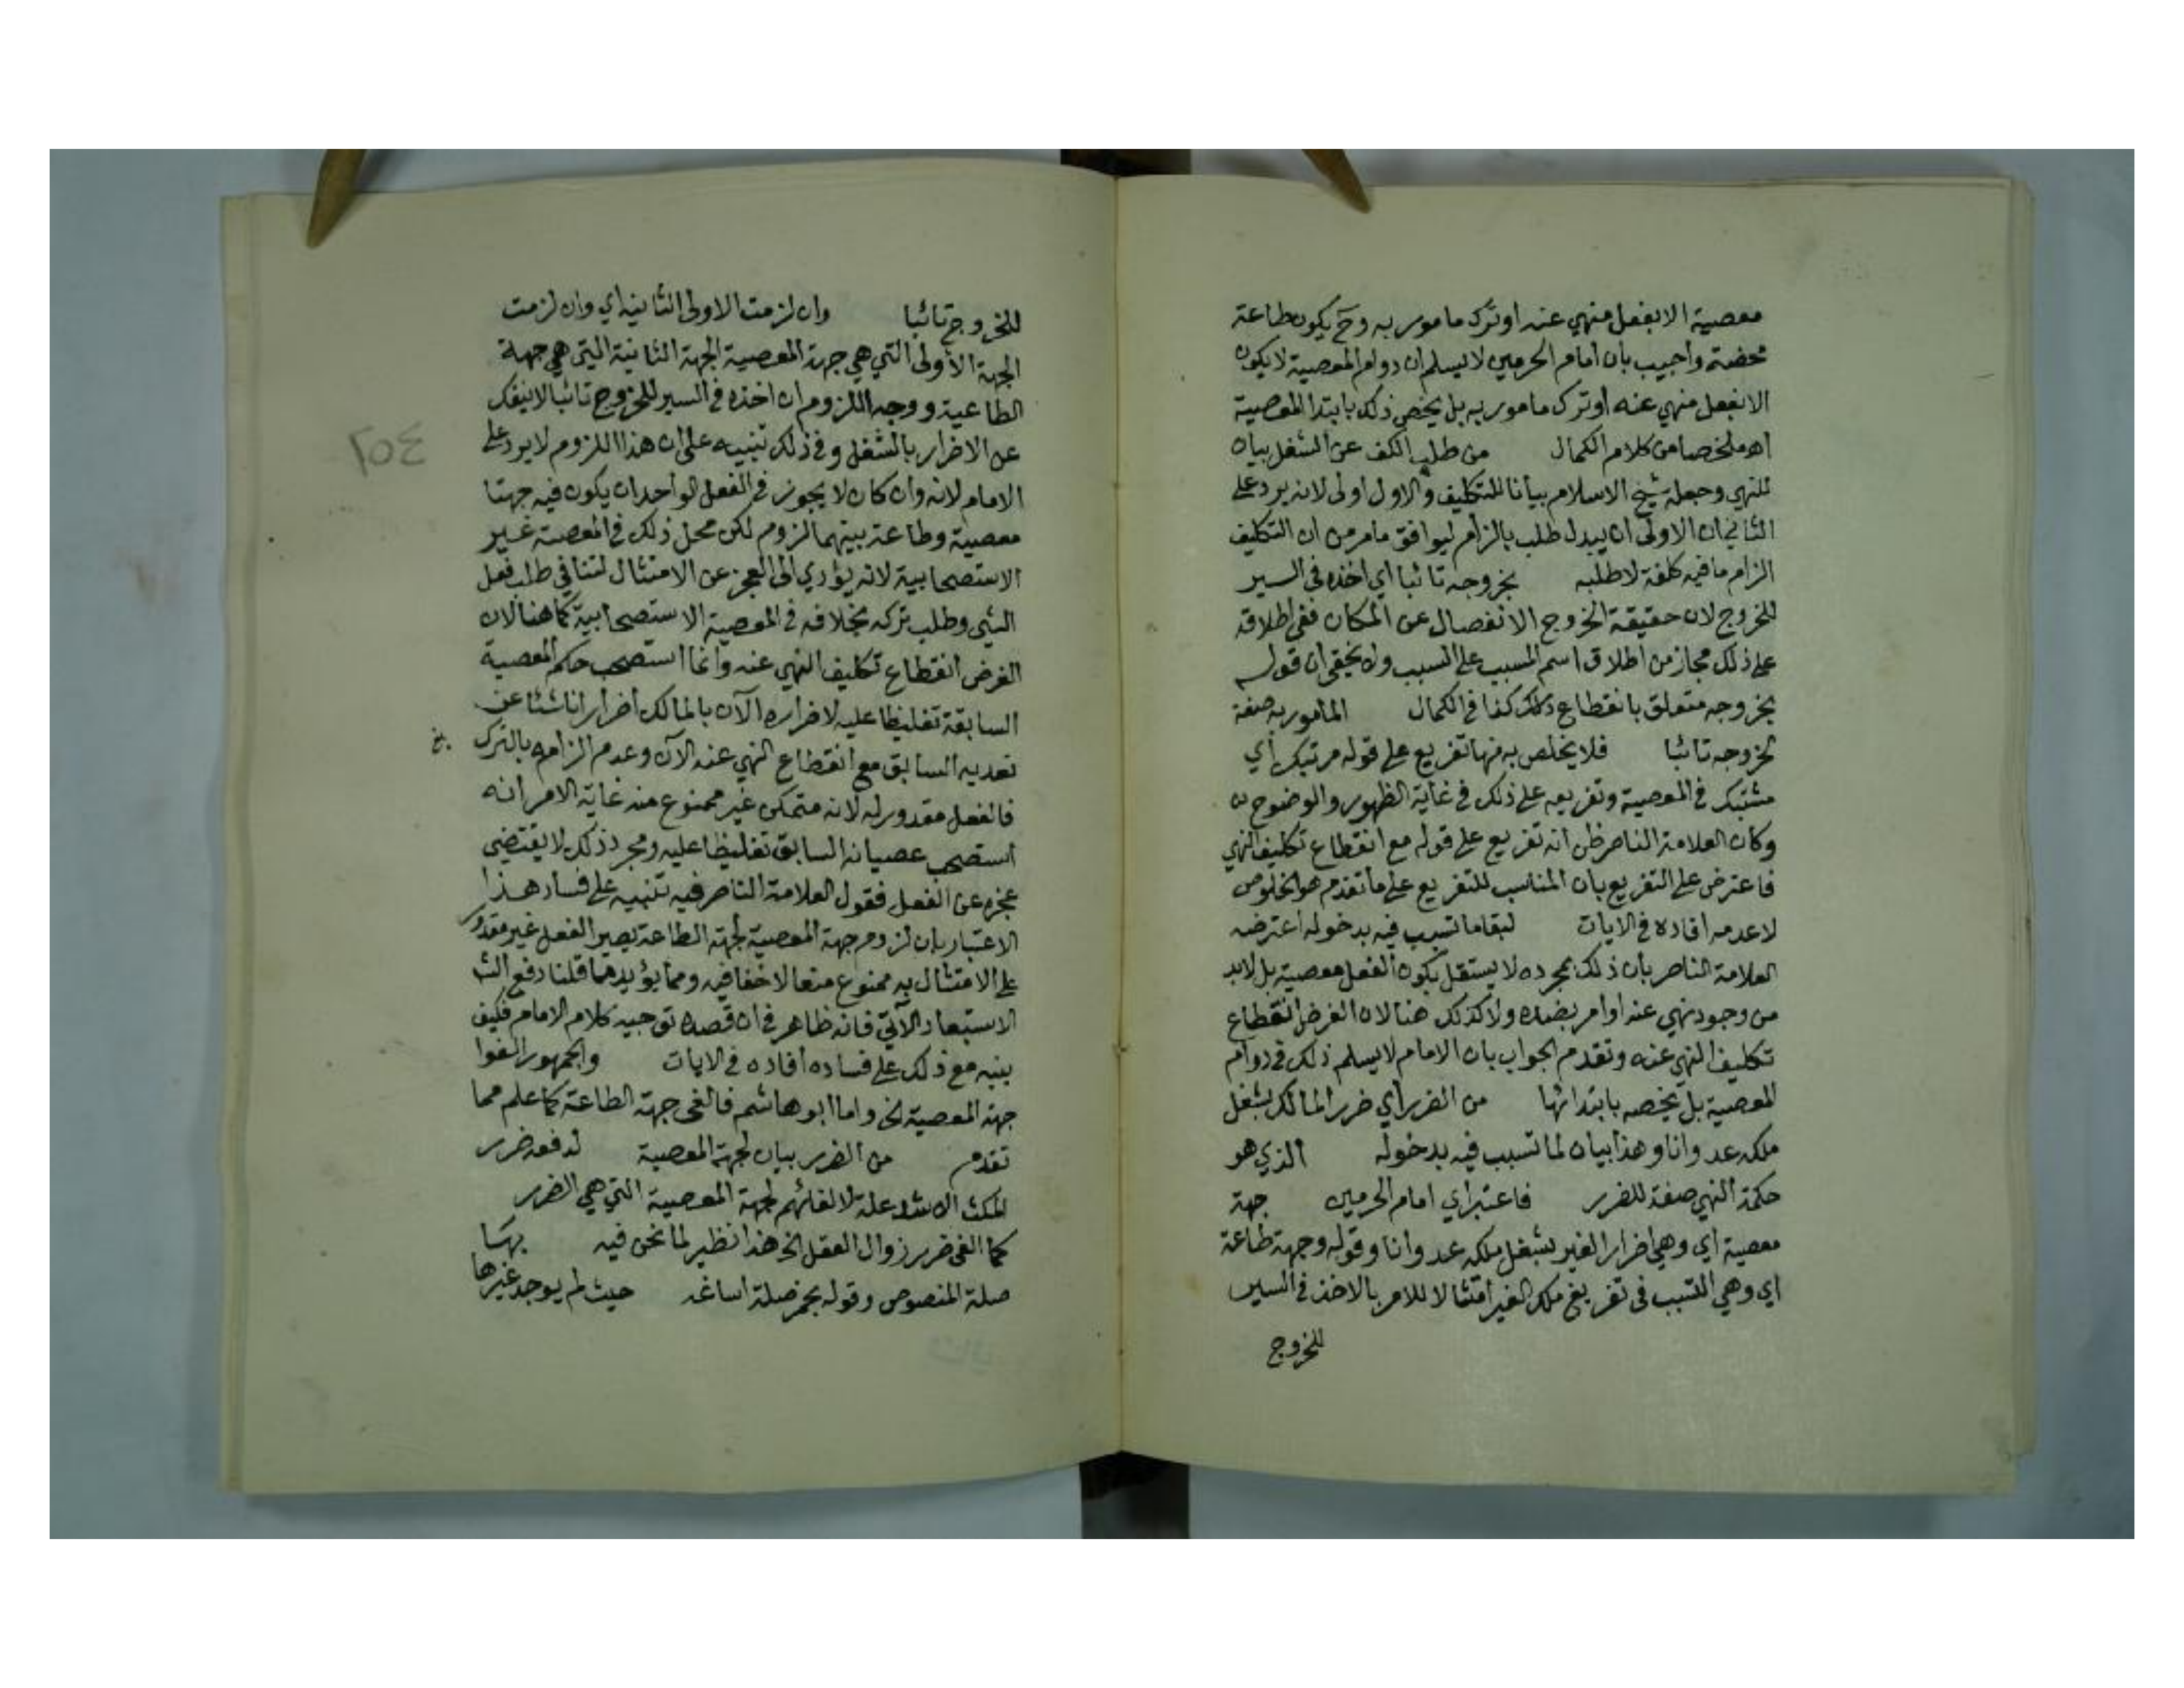 معصية الا بفعل منهي عنه او ترك مامور به وح يكون طاعة
محضة واجيب بان امام الحرمين لا يسلم ان دوام المعصية لا يكون
الا بفعل منهي عنه او ترك مامور به بل يخص ذلك بابتدا المعصية
اه ملخصا من كلام الكمال من طلب الكف عن الشغل بيان
للنهي وجعله شيخ الاسلام بيانا للتكليف والاول اولى لانه يرد على
الثاني ان الاولى ان يبدل طلب بالزام ليوافق ما مر من ان التكليف
الزام ما فيه كلفة لا طلبه بخروجه تائبا اي اخذه في السير
للخروج لان حقيقة الخروج الانفصال عن المكان ففي اطلاقه
على ذلك مجاز من اطلاق اسم المسبب على السبب ولا يخفى ان قوله
بخروجه متعلق بانقطاع ذلك كذا في الكمال المامور به صفة
لخروجه تائبا فلا يخلص به منها تفريع على قوله مرتبك اي
مشتبك في المعصية وتفريعه على ذلك في غاية الظهور والوضوح
وكان العلامة الناصر ظن انه تفريع على قوله مع انقطاع تكليف النهي
فاعترض على التفريع بان المناسب للتفريع على ما تقدم هو الخلوص
لا عدمه افاده في الايات لبقا ما تسبب فيه بدخوله اعترضه
العلامة الناصر بان ذلك بمجرده لا يستقل بكون الفعل معصية بل لابد
من وجود نهي عنه او امر بضده ولا كذلك هنا لان الفرض انقطاع
تكليف النهي عنه وتقدم الجواب بان الامام لا يسلم ذلك في دوام
المعصية بل يخصه بابتدائها من الضرر اي ضرر المالك بشغل
ملكه عدوانا وهذا بيان لما تسبب فيه بدخوله الذي هو
حكمة النهي صفة للضرر فاعتبر اي امام الحرمين جهة
معصية اي وهي اضرار الغير بشغل ملكه عدوانا وقوله وجهة طاعة
اي وهي التسبب في تفريغ ملك الغير امتثالا للامر بالاخذ في السير
للخروج
للخروج تائبا وان لزمت الاولى الثانية اي وان لزمت
الجهة الاولى التي هي جهة المعصية الجهة الثانية التي هي جهة
الطاعية ووجه اللزوم ان اخذه في السير للخروج تائبا لا ينفك
عن الاضرار بالشغل وفي ذلك تنبيه على ان هذا اللزوم لا يرد على
الامام لانه وان كان لا يجوز في الفعل الواحد ان يكون فيه جهتا
معصية وطاعة بينهما لزوم لكن محل ذلك في المعصية غير
الاستصحابية لانه يؤدي الى العجز عن الامتثال لتنافي طلب فعل
الشي وطلب تركه بخلافه في المعصية الاستصحابية كما هنا لان
الفرض انقطاع تكليف النهي عنه وانما استصحب حكم المعصية
السابقة تغليظا عليه لاضراره الآن بالمالك اضرارا ناشئا عن
تعديه السابق مع انقطاع النهي عنه الآن وعدم الزامه بالترك
فالفعل مقدور له لانه متمكن غير ممنوع منه غاية الامر انه
استصحب عصيانه السابق تغليظا عليه ومجرد ذلك لا يقتضي
عجزه عن الفعل فقول العلامة الناصر فيه تنبيه على فساد هذا
الاعتبار بان لزوم جهة المعصية لجهة الطاعة يصير الفعل غير مقدور
على الامتثال به ممنوع منعا لا خفا فيه ومما يؤيد ما قلنا دفع الش
الاستبعاد الآتي فانه ظاهر في ان قصده توجيه كلام الامام فكيف
ينبه مع ذلك على فساده افاده في الايات والجمهور الغوا
جهة المعصية الخ واما ابو هاشم فالغى جهة الطاعة كما علم مما
تقدم من الضرر بيان لجهة المعصية لدفعه ضرر
المكث الاشد علة لالغائهم لجهة المعصية التي هي الضرر
كما الغى ضرر زوال العقل الخ هذا نظير لما نحن فيه بها
صلة المنصوص وقوله بخمر صلة اساغة حيث لم يوجد غيرها
٢٥٤